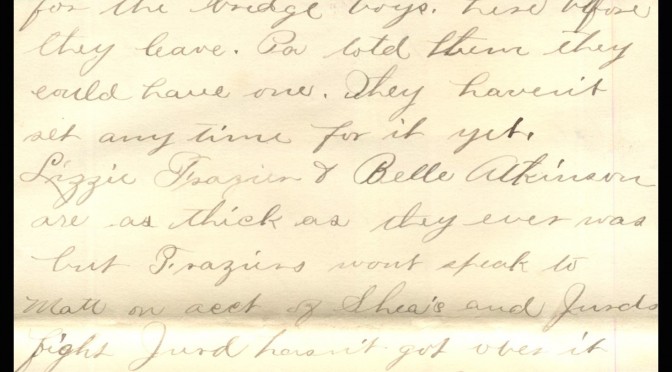 for the bridge boys. here before
they leave. Pa told them they
could have one. They haven't
set any time for it yet.
Lizzie Frazier & Belle Atkinson
are as thick as they ever was
but Fraziers wont speak to
Matt on acct of Shea's and Jurds
fight Jurd hasn't got over it